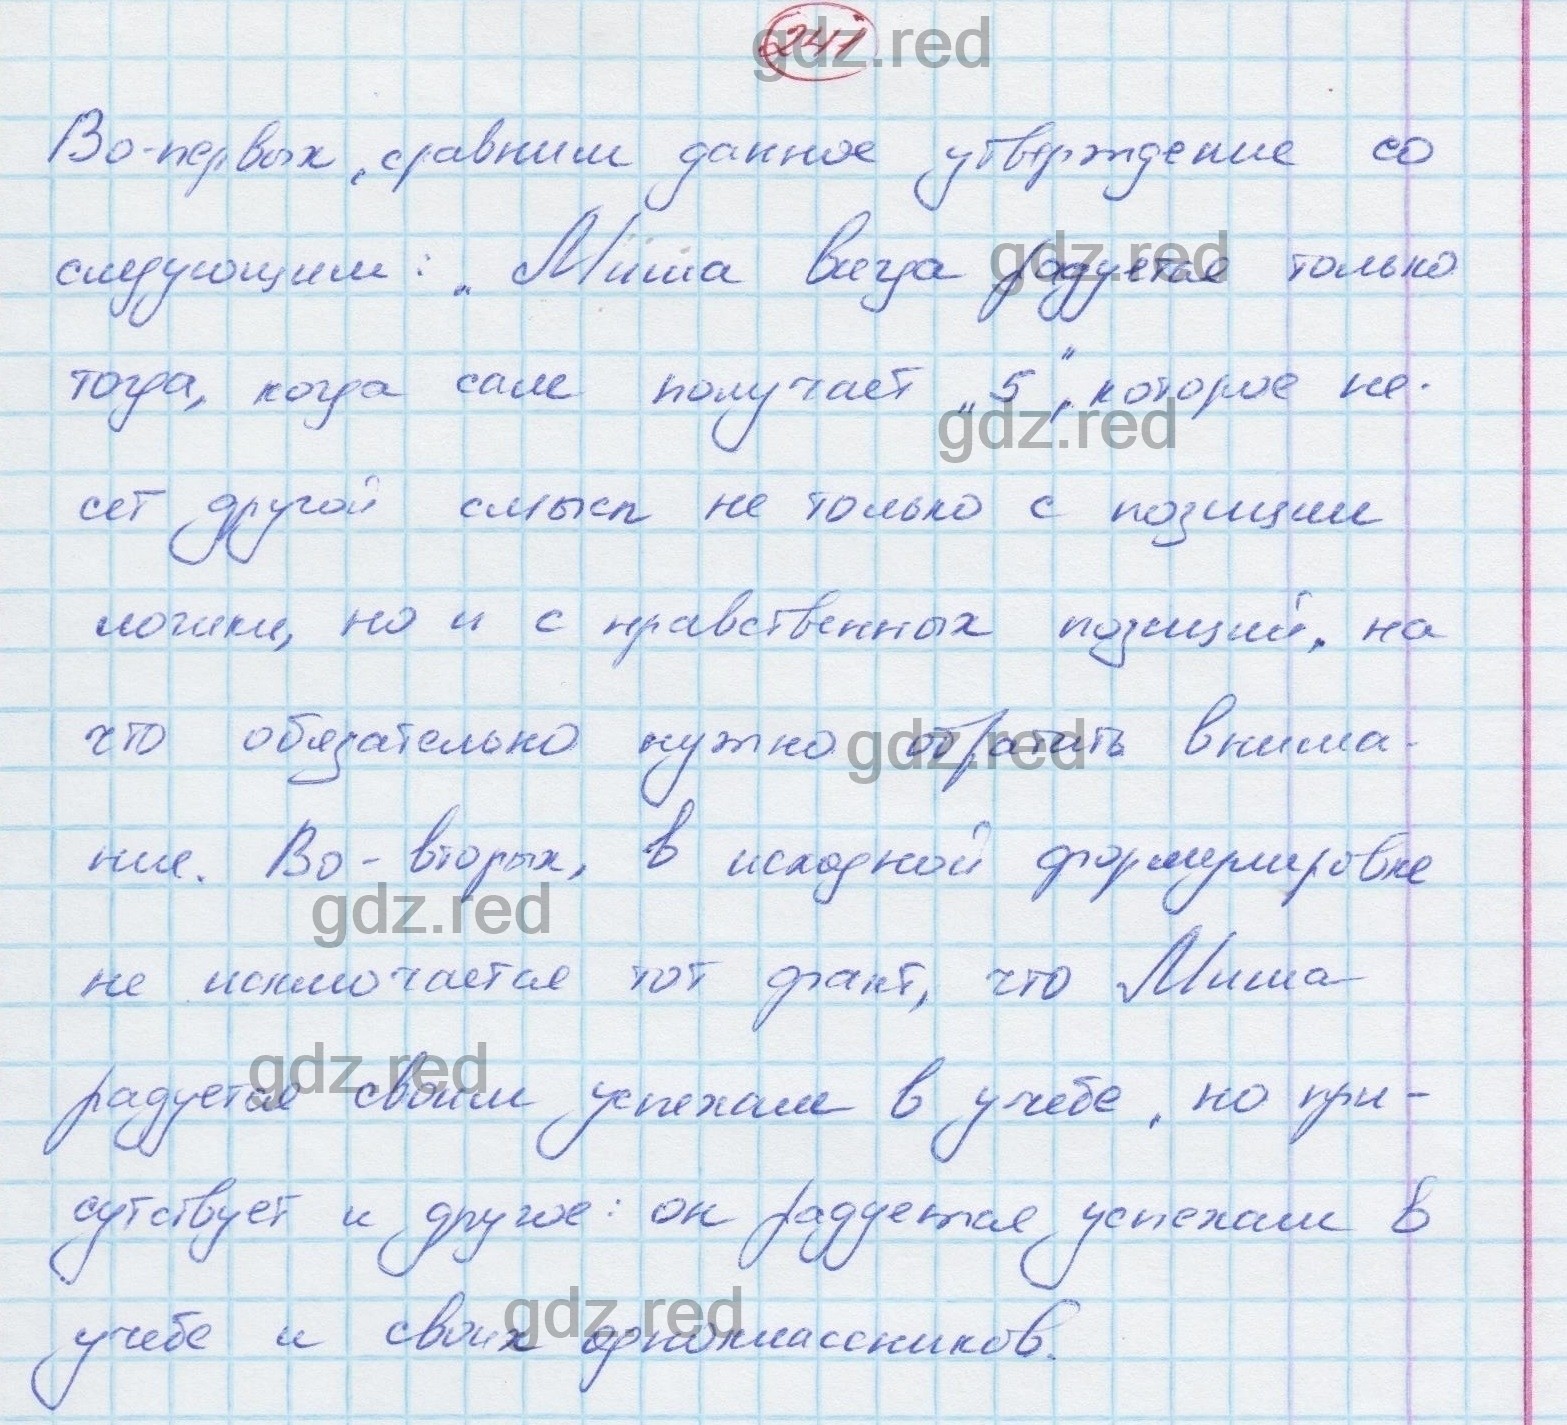 241
gdz.red
Во-первых, сравним данное утверждение со
следующим: „Миша всегда радуется только
gdz.red
тогда, когда сам получает „5", которое не-
gdz.red
сет другой смысл не только с позиции
логики, но и с нравственных позиций, на
что обязательно нужно обратить внима-
gdz.red
ние. Во-вторых, в исходной формулировке
gdz.red
не исключается тот факт, что Миша
радуется своим успехам в учебе, но при-
gdz.red
сутствует и другое: он радуется успехам в
учебе и своих одноклассников.
gdz.red